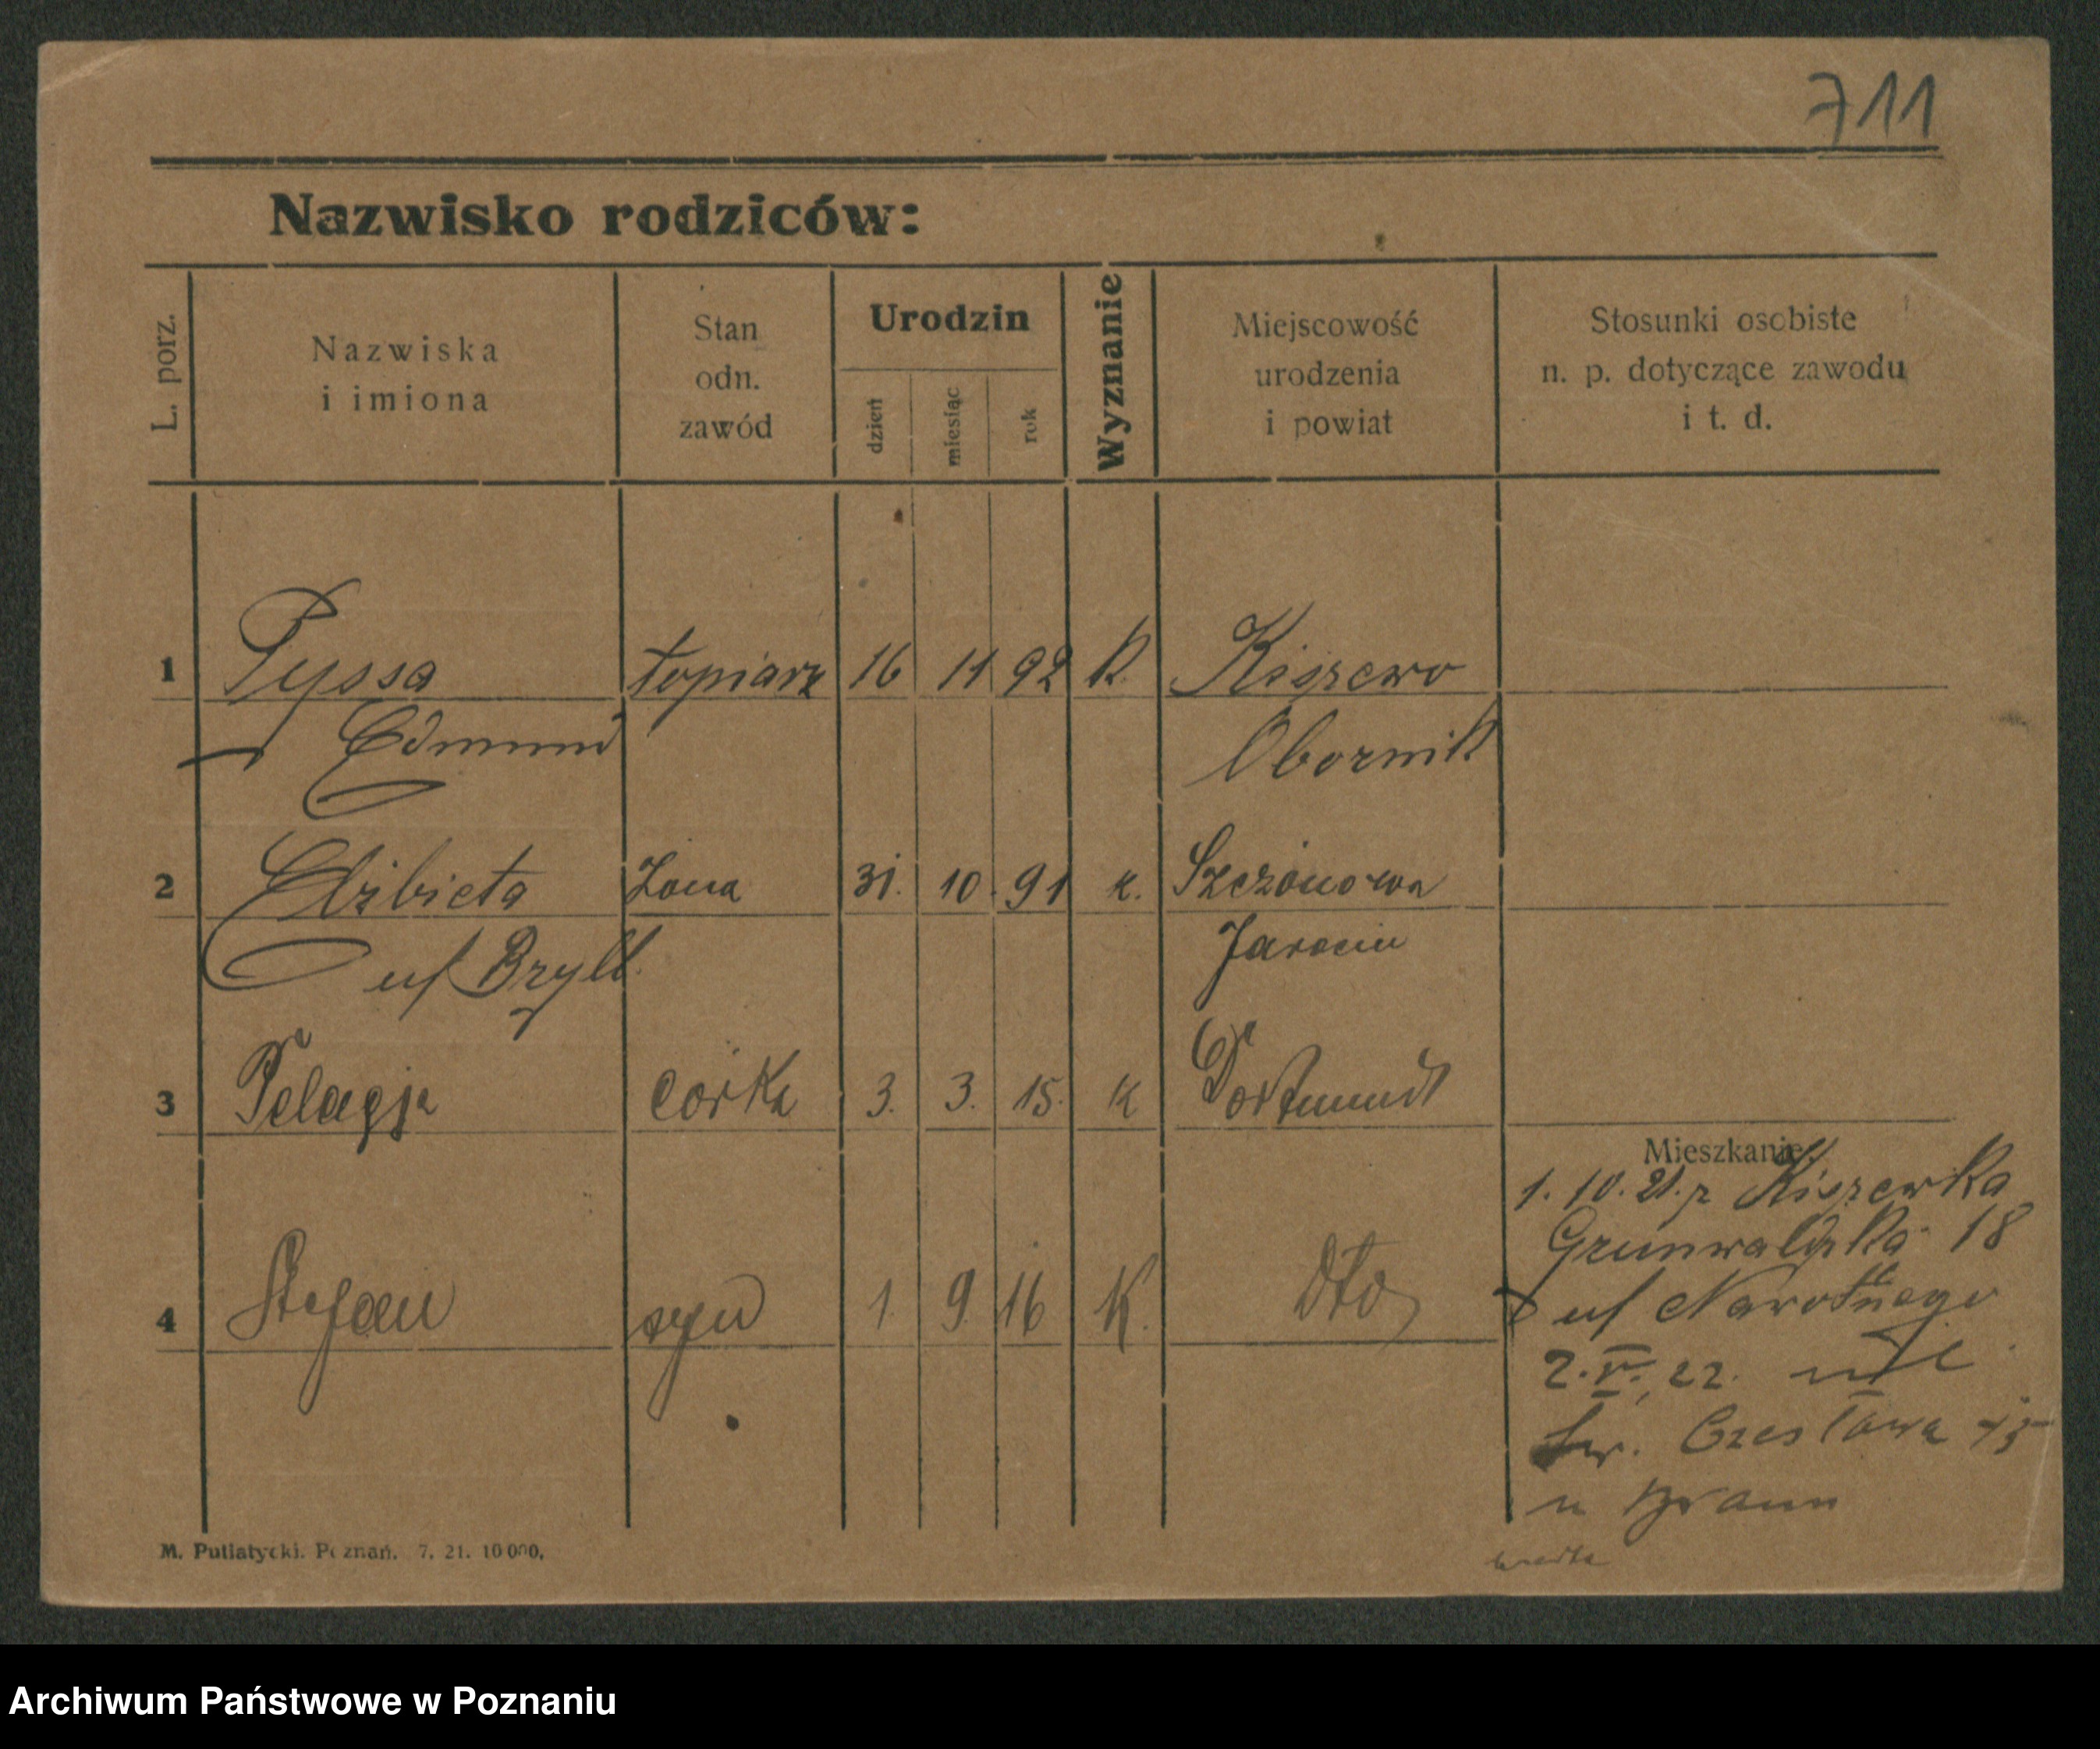 711
Nazwisko rodziców:
L. porz.
Nazwiska
i imiona
Stan
odn.
zawód
Urodzin
dzień
miesiąc
rok
Wyznanie
Miejscowość
urodzenia
i powiat
Stosunki osobiste
n. p. dotyczące zawodu
i t. d.
1 Pyssa topiarz 16 11 92 K. Kiszewo
Edmund Obornik
2 Elżbieta Żona 31. 10. 91 K. Szczonowa
u/ Bryll. Jarocin
3 Pelagja córka 3. 3. 15. K Dortmund
Mieszkanie:
1. 10. 21. z Kiszewka
Grunwaldzka 18
4 Stefan syn 1. 9. 16 K. dto
u/ Nawrotnego
2. V. 22.
św. Czesława
u Braun
M. Putiatycki. Poznań. 7. 21. 10 000.
Archiwum Państwowe w Poznaniu